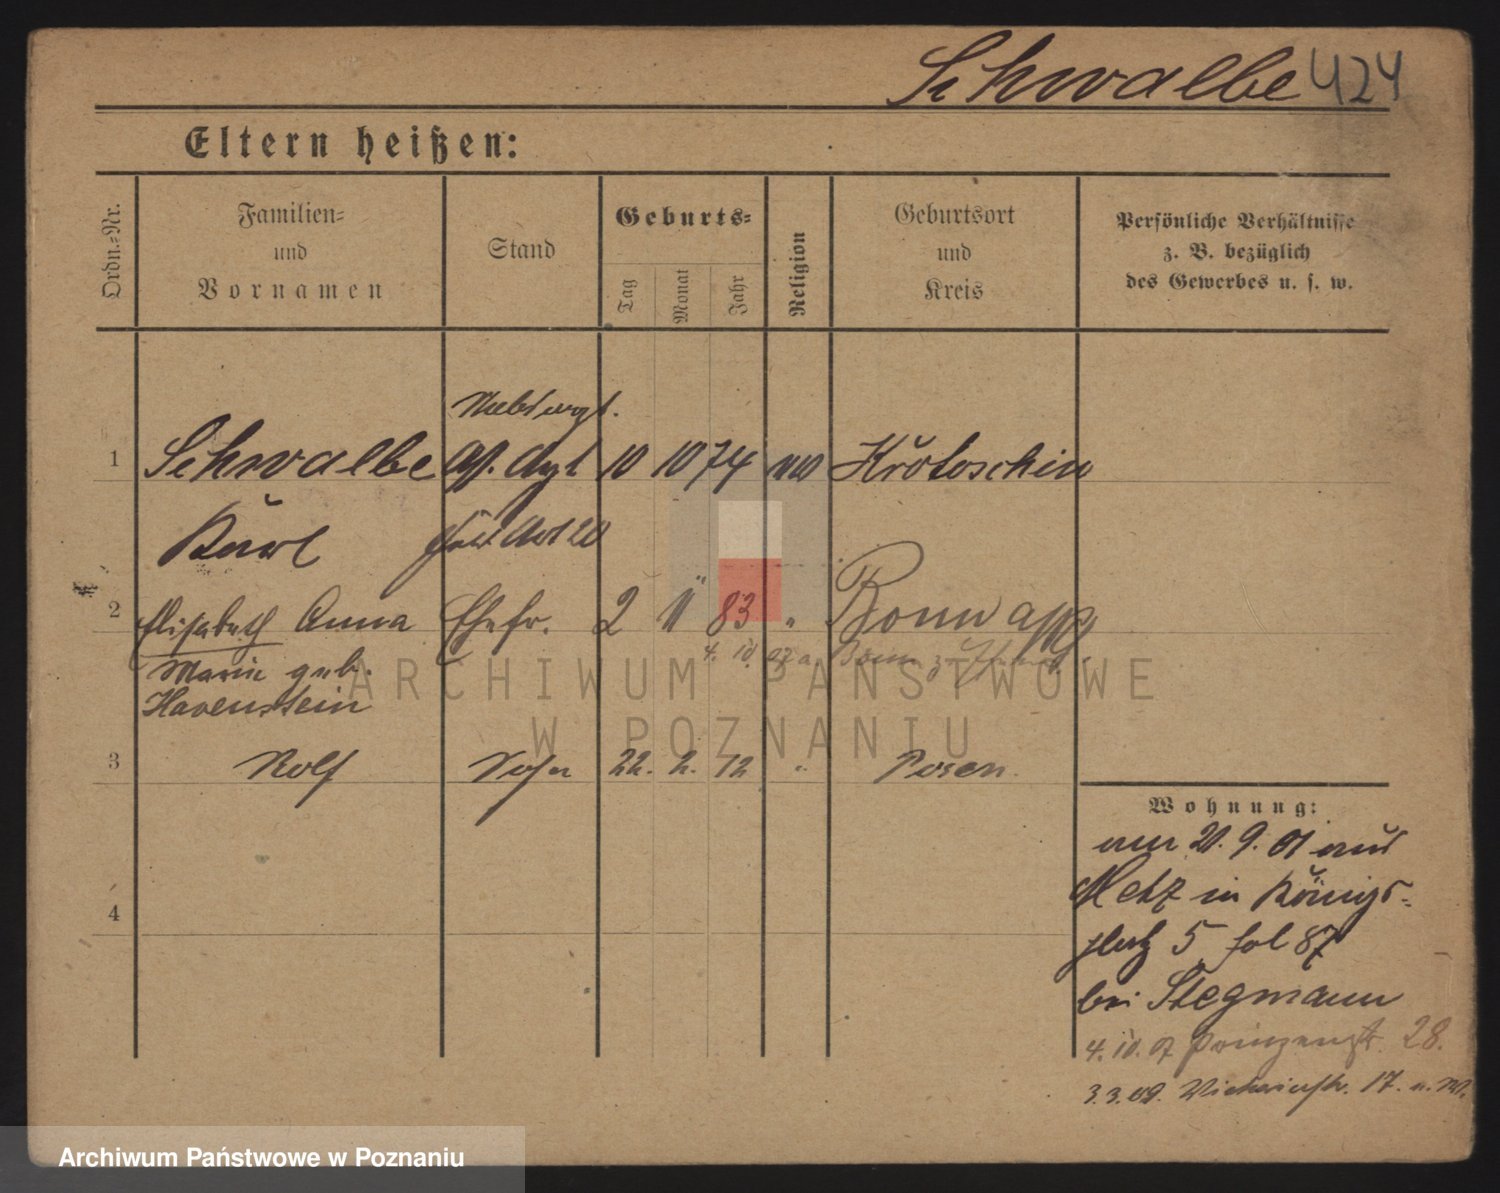 Schwalbe 424
Eltern heißen:
Ordn.=Nr.
Familien=
und
Vornamen
Stand
Geburts=
Tag
Monat
Jahr
Religion
Geburtsort
und
Kreis
Persönliche Verhältnisse
z. B. bezüglich
des Gewerbes u. s. w.
1 Schwalbe 10 10 74 Krotoschin
Karl
2 Elisabeth Anna Ehefr. 2 11 83 "
Marie geb.
Havenstein
4. 10. 07
ARCHIWUM PAŃSTWOWE
W POZNANIU
3 Rolf Sohn 22. 2. 12 " Posen
Wohnung:
am 21. 9. 01 aus
Metz in Königs-
platz 5 fol 87
bei Stegmann
4. 10. 07 Prinzenstr. 28.
3. 3. 09. 17.
4
Archiwum Państwowe w Poznaniu